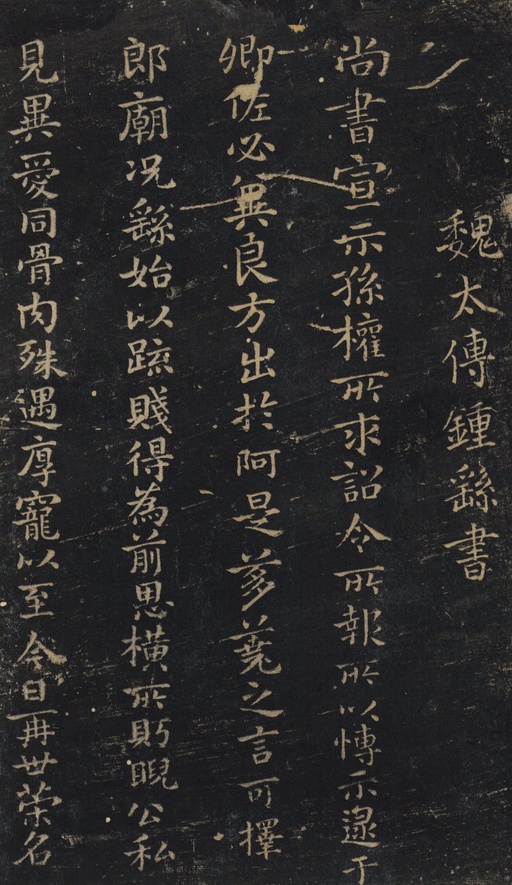 魏太傅鍾繇書
尚書宣示孫權所求詔令所報所以慱示逮于
卿佐必冀良方出於阿是芻蕘之言可擇
郎廟况繇始以疏賤得為前思橫所眄睨公私
見異愛同骨肉殊遇厚寵以至今日再世榮名